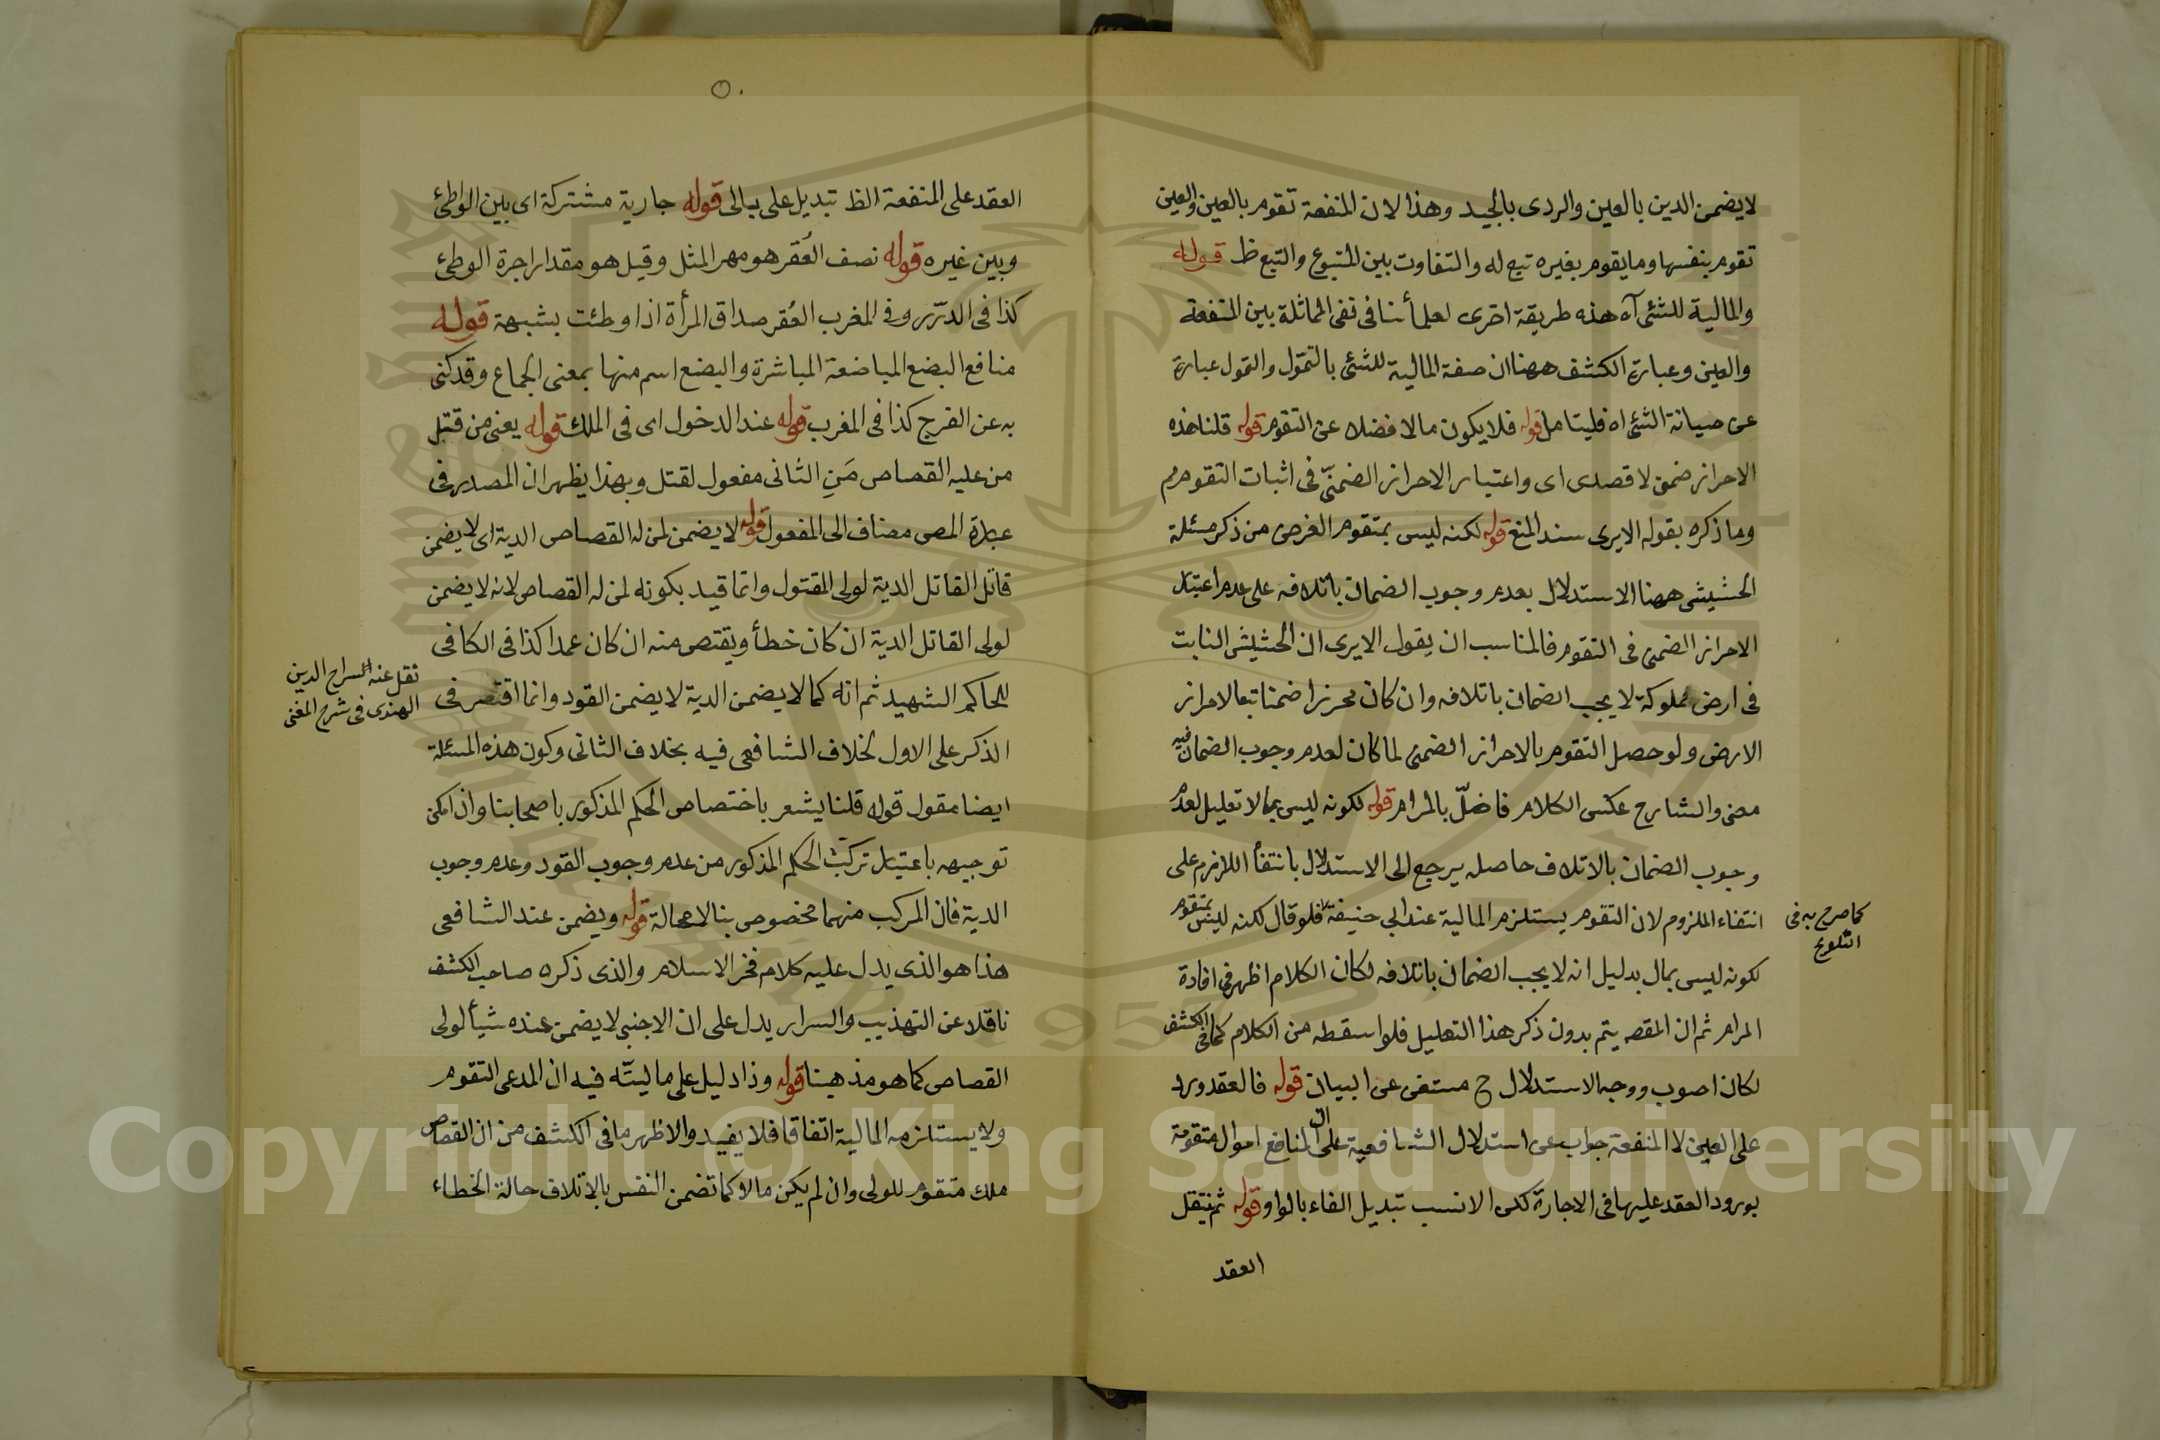 لا يضمن الدين بالعين والردى بالجيد وهذا لان المنفعة تقوم بالعين والعين
تقوم بنفسها وما يقوم بغيره تبع له والتفاوت بين المتبوع والتبع ظ قوله
والمالية للشئ آه هذه طريقة اخرى لعلمأنا فى نفى المماثلة بين المنفعة
والعين وعبارة الكشف ههنا ان صفة المالية للشئ بالتموّل والتمول عبارة
عن صيانة الشئ اه فليتامل قوله فلا يكون مالا فضلا عن التقوم قوله قلنا هذه
الاحراز ضمن لا قصدى اى واعتبار الاحراز الضمنّى فى اثبات التقوم م
وما ذكره بقوله الا يرى سند المنع قوله لكنه ليس بمتقوم الغرض من ذكر مسئلة
الحشيش ههنا الاستدلال بعدم وجوب الضمان باتلافه على عدم اعتبار
الاحراز الضمنى فى التقوم فالمناسب ان يقول الا يرى ان الحشيش النابت
فى ارض مملوكة لا يجب الضمان باتلافه وان كان محرزا ضمنا تبعا لاحراز
الارض ولو حصل التقوم بالاحراز الضمنى لما كان لعدم وجوب الضمان فيه
معنى والشارح عكس الكلام فاضلّ بالمرام قوله لكونه ليس بمال تعليل لعدم
وجوب الضمان بالاتلاف حاصله يرجع الى الاستدلال بانتفأ اللازم على
انتفاء الملزوم لان التقوم يستلزم المالية عند ابي حنيفة فلو قال لكنه ليس بمتقوم
كما صرح به فى
التلويح
لكونه ليس بمال بدليل انه لا يجب الضمان باتلافه لكان الكلام اظهر فى افادة
المرام ثم ان المقصه يتم بدون ذكر هذا التعليل فلو اسقطه من الكلام كما فى الكشف
لكان اصوب ووجه الاستدلال ح مستغنى عن البيان قوله فالعقد ورد
على العين لا المنفعة جواب عن استدلال الشافعية على ان المنافع اموال متقومة
بورود العقد عليها فى الاجارة لكن الانسب تبديل الفاء بالواو قوله ثم ينتقل
العقد
٥٠
العقد على المنفعة الظ تبديل على بالى قوله جارية مشتركة اى بين الواطئ
وبين غيره قوله نصف العُقر هو مهر المثل وقيل هو مقدار اجرة الوطئ
كذا فى الدرر وفى المغرب العُقر صداق المرأة اذا وطئت بشبهة قوله
منافع البضع المباضعة المباشرة والبضع اسم منها بمعنى الجماع وقد كنى
به عن الفرج كذا فى المغرب قوله عند الدخول اى فى الملك قوله يعنى من قتل
من عليه القصاص مَنِ الثانى مفعول لقتل وبهذا يظهر ان المصدر فى
عبارة المص مضاف الى المفعول قوله لا يضمن لمن له القصاص الدية اى لا يضمن
قاتل القاتل الدية لولى المقتول وانما قيد بكونه لمن له القصاص لانه لا يضمن
لولى القاتل الدية ان كان خطأ ويقتص منه ان كان عمدا كذا فى الكافى
للحاكم الشهيد ثم انه كما لا يضمن الدية لا يضمن القود وانما اقتصر فى
نقل عنه السراج الدين
الهندى فى شرح المغنى
الذكر على الاول لخلاف الشافعى فيه بخلاف الثانى وكون هذه المسئلة
ايضا مقول قوله قلنا يشعر باختصاص الحكم المذكور باصحابنا وان امكن
توجيهه باعتبار تركّب الحكم المذكور من عدم وجوب القود وعدم وجوب
الدية فان المركب منهما مخصوص بنا لا محالة قوله ويضمن عند الشافعى
هذا هو الذى يدل عليه كلام فخر الاسلام والذى ذكره صاحب الكشف
ناقلا عن التهذيب والسرار يدل على ان الاجنبى لا يضمن عنده شيأ لولى
القصاص كما هو مذهبنا قوله وذا دليل على ماليته فيه ان المدعى التقوم
ولا يستلزمه المالية اتفاقا فلا يفيد والاظهر ما فى الكشف من ان القصاص
ملك متقوم للولى وان لم يكن مالا كما تضمن النفس بالاتلاف حالة الخطاء
Copyright © King Saud University